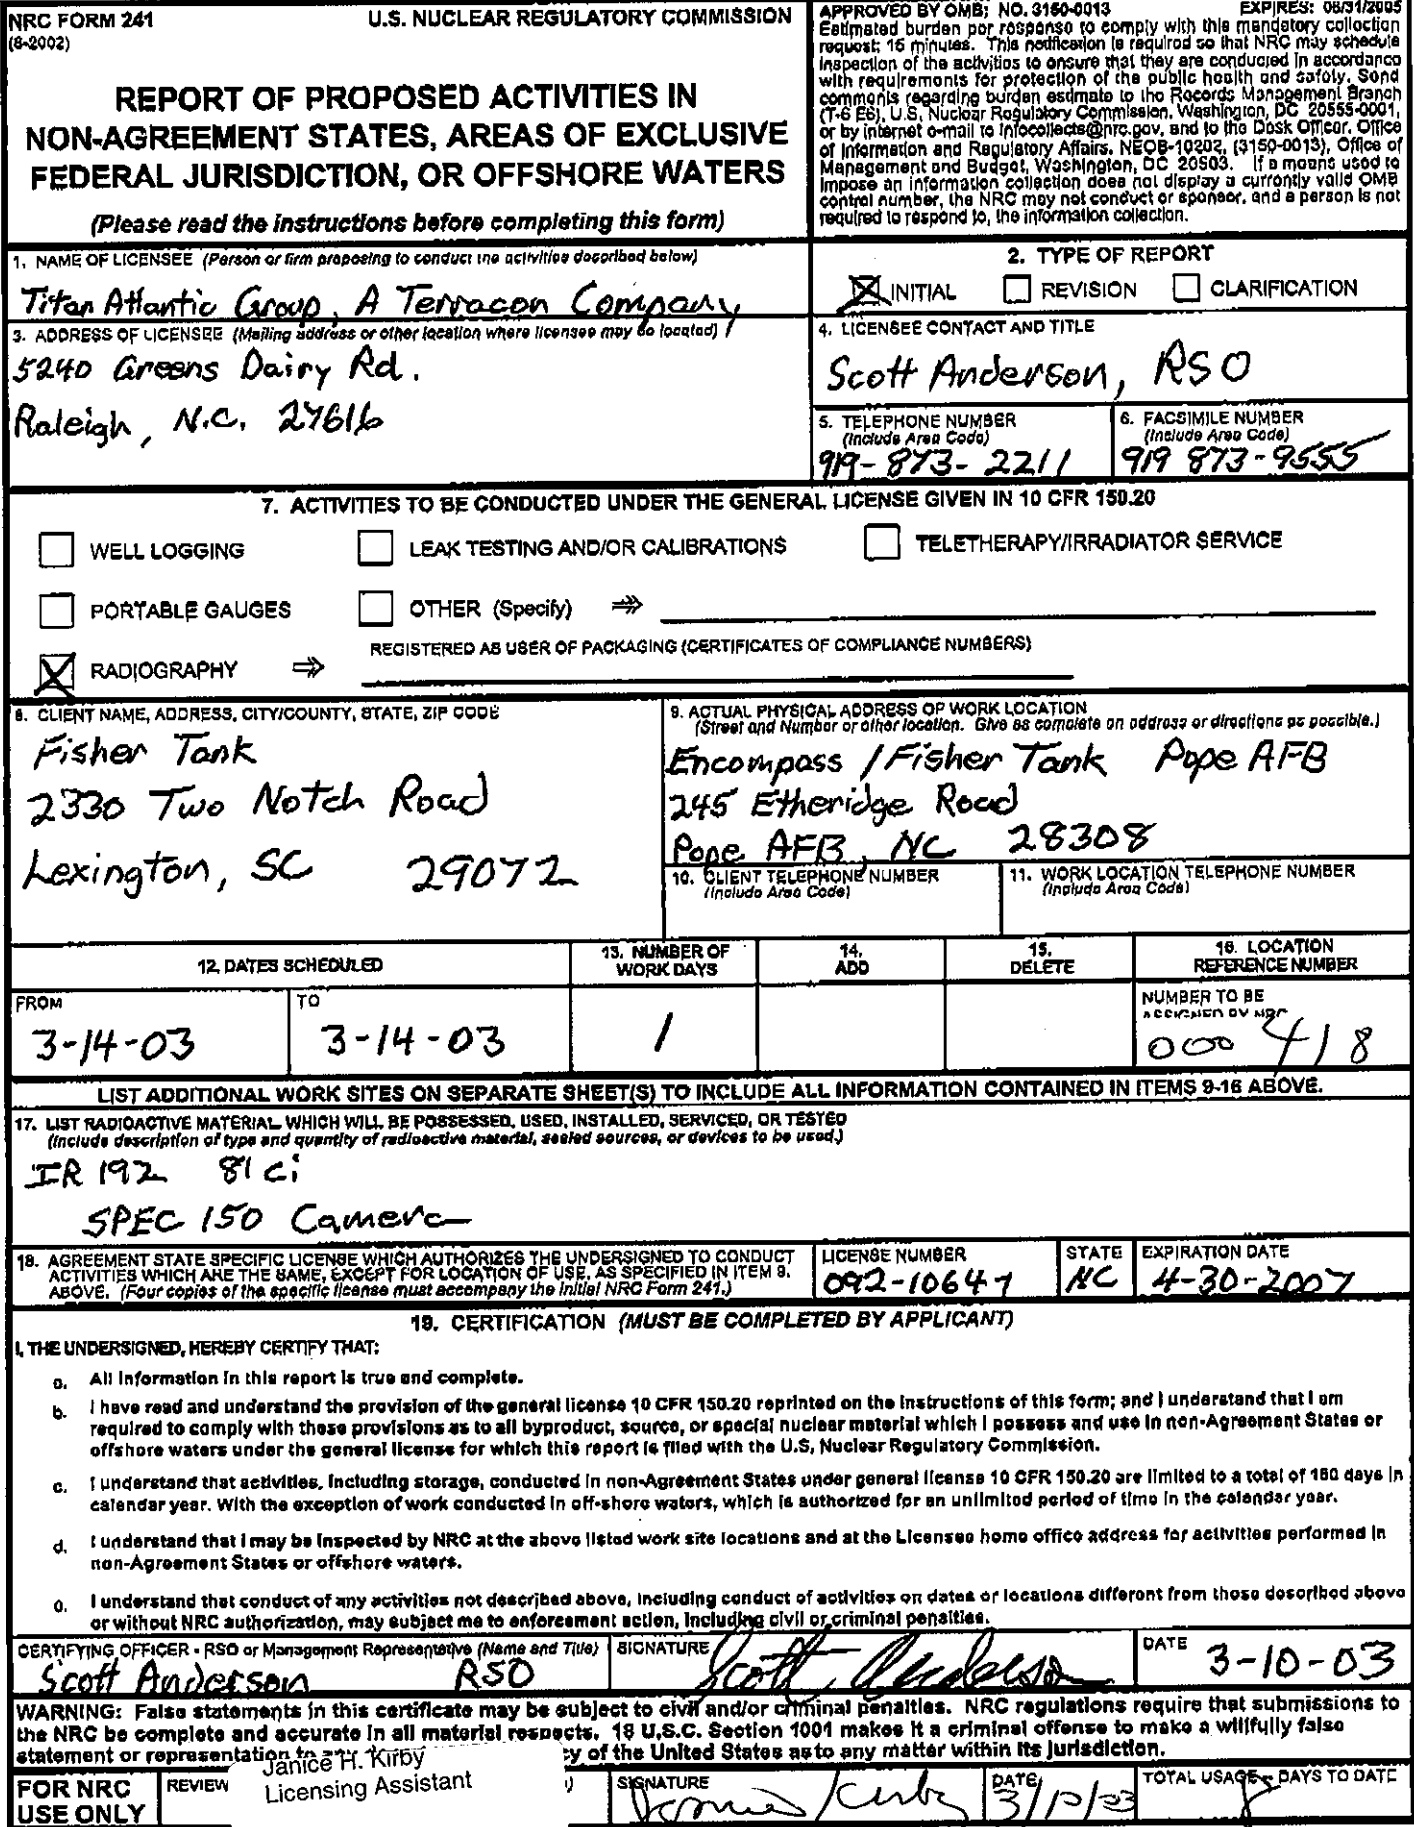 NRC FORM 241
(8-2002)
U.S. NUCLEAR REGULATORY COMMISSION
REPORT OF PROPOSED ACTIVITIES IN
NON-AGREEMENT STATES, AREAS OF EXCLUSIVE
FEDERAL JURISDICTION, OR OFFSHORE WATERS
(Please read the instructions before completing this form)
APPROVED BY OMB: NO. 3150-0013 EXPIRES: 08/31/2005
Estimated burden per response to comply with this mandatory collection
request: 15 minutes. This notification is required so that NRC may schedule
inspection of the activities to ensure that they are conducted in accordance
with requirements for protection of the public health and safety. Send
comments regarding burden estimate to the Records Management Branch
(T-6 E6), U.S. Nuclear Regulatory Commission, Washington, DC 20555-0001,
or by internet e-mail to infocollects@nrc.gov, and to the Desk Officer, Office
of Information and Regulatory Affairs, NEOB-10202, (3150-0013), Office of
Management and Budget, Washington, DC 20503. If a means used to
impose an information collection does not display a currently valid OMB
control number, the NRC may not conduct or sponsor, and a person is not
required to respond to, the information collection.
1. NAME OF LICENSEE (Person or firm proposing to conduct the activities described below)
Titan Atlantic Group, A Terracon Company
2. TYPE OF REPORT
INITIAL REVISION CLARIFICATION
3. ADDRESS OF LICENSEE (Mailing address or other location where licensee may be located)
5240 Greens Dairy Rd.
Raleigh, N.C. 27616
4. LICENSEE CONTACT AND TITLE
Scott Anderson, RSO
5. TELEPHONE NUMBER
(Include Area Code)
919-873-2211
6. FACSIMILE NUMBER
(Include Area Code)
919 873-9555
7. ACTIVITIES TO BE CONDUCTED UNDER THE GENERAL LICENSE GIVEN IN 10 CFR 150.20
WELL LOGGING LEAK TESTING AND/OR CALIBRATIONS TELETHERAPY/IRRADIATOR SERVICE
PORTABLE GAUGES OTHER (Specify)
RADIOGRAPHY REGISTERED AS USER OF PACKAGING (CERTIFICATES OF COMPLIANCE NUMBERS)
8. CLIENT NAME, ADDRESS, CITY/COUNTY, STATE, ZIP CODE
Fisher Tank
2330 Two Notch Road
Lexington, SC 29072
9. ACTUAL PHYSICAL ADDRESS OF WORK LOCATION
(Street and Number or other location. Give as complete an address or directions as possible.)
Encompass / Fisher Tank Pope AFB
245 Etheridge Road
Pope AFB, NC 28308
10. CLIENT TELEPHONE NUMBER
(Include Area Code)
11. WORK LOCATION TELEPHONE NUMBER
(Include Area Code)
12. DATES SCHEDULED
13. NUMBER OF
WORK DAYS
14.
ADD
15.
DELETE
16. LOCATION
REFERENCE NUMBER
FROM
3-14-03
TO
3-14-03
1
NUMBER TO BE
ASSIGNED BY NRC
000418
LIST ADDITIONAL WORK SITES ON SEPARATE SHEET(S) TO INCLUDE ALL INFORMATION CONTAINED IN ITEMS 9-16 ABOVE.
17. LIST RADIOACTIVE MATERIAL WHICH WILL BE POSSESSED, USED, INSTALLED, SERVICED, OR TESTED
(Include description of type and quantity of radioactive material, sealed sources, or devices to be used.)
IR 192 81 ci
SPEC 150 Camera
18. AGREEMENT STATE SPECIFIC LICENSE WHICH AUTHORIZES THE UNDERSIGNED TO CONDUCT
ACTIVITIES WHICH ARE THE SAME, EXCEPT FOR LOCATION OF USE, AS SPECIFIED IN ITEM 9.
ABOVE. (Four copies of the specific license must accompany the initial NRC Form 241.)
LICENSE NUMBER
092-1064-1
STATE
NC
EXPIRATION DATE
4-30-2007
19. CERTIFICATION (MUST BE COMPLETED BY APPLICANT)
I, THE UNDERSIGNED, HEREBY CERTIFY THAT:
a. All information in this report is true and complete.
b. I have read and understand the provision of the general license 10 CFR 150.20 reprinted on the instructions of this form; and I understand that I am
required to comply with these provisions as to all byproduct, source, or special nuclear material which I possess and use in non-Agreement States or
offshore waters under the general license for which this report is filed with the U.S. Nuclear Regulatory Commission.
c. I understand that activities, including storage, conducted in non-Agreement States under general license 10 CFR 150.20 are limited to a total of 180 days in
calendar year. With the exception of work conducted in off-shore waters, which is authorized for an unlimited period of time in the calendar year.
d. I understand that I may be inspected by NRC at the above listed work site locations and at the Licensee home office address for activities performed in
non-Agreement States or offshore waters.
e. I understand that conduct of any activities not described above, including conduct of activities on dates or locations different from those described above
or without NRC authorization, may subject me to enforcement action, including civil or criminal penalties.
CERTIFYING OFFICER - RSO or Management Representative (Name and Title)
Scott Anderson RSO
SIGNATURE
Scott Anderson
DATE
3-10-03
WARNING: False statements in this certificate may be subject to civil and/or criminal penalties. NRC regulations require that submissions to
the NRC be complete and accurate in all material respects. 18 U.S.C. Section 1001 makes it a criminal offense to make a willfully false
statement or representation to cy of the United States as to any matter within its jurisdiction.
FOR NRC
USE ONLY
REVIEW
Janice H. Kirby
Licensing Assistant
SIGNATURE
DATE
3/10/03
TOTAL USAGE - DAYS TO DATE